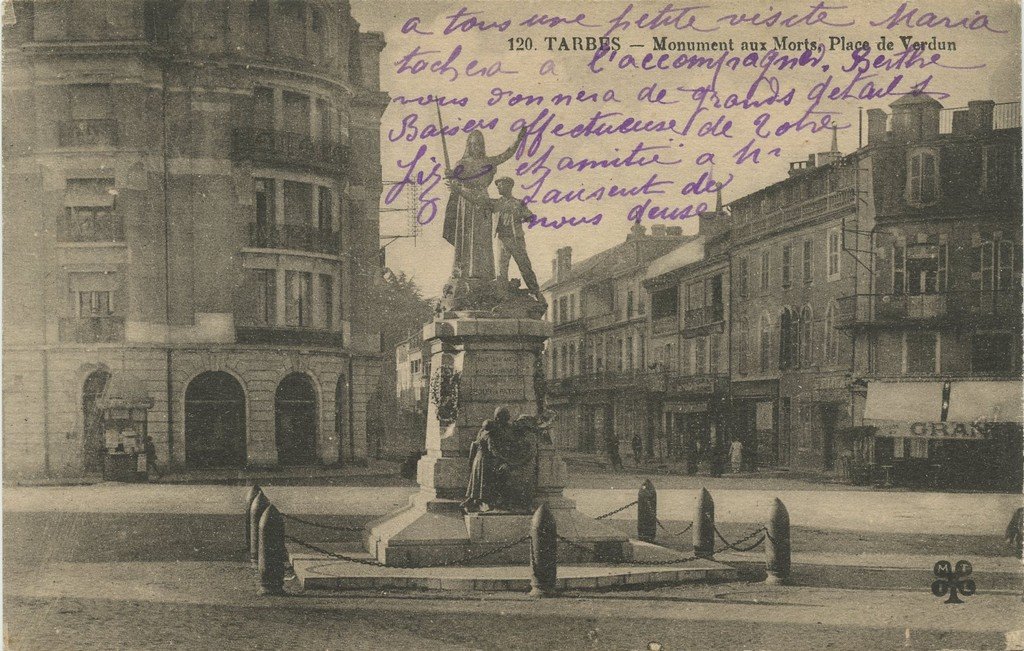 a tous une petite visite Maria
120. TARBES — Monument aux Morts, Place de Verdun
tachera a l'accompagner. Berthe
vous donnera de grands détails
Baisers affectueuse de votre
et amitié a
Laurent de
nous deuse
GRAN
M T
I L